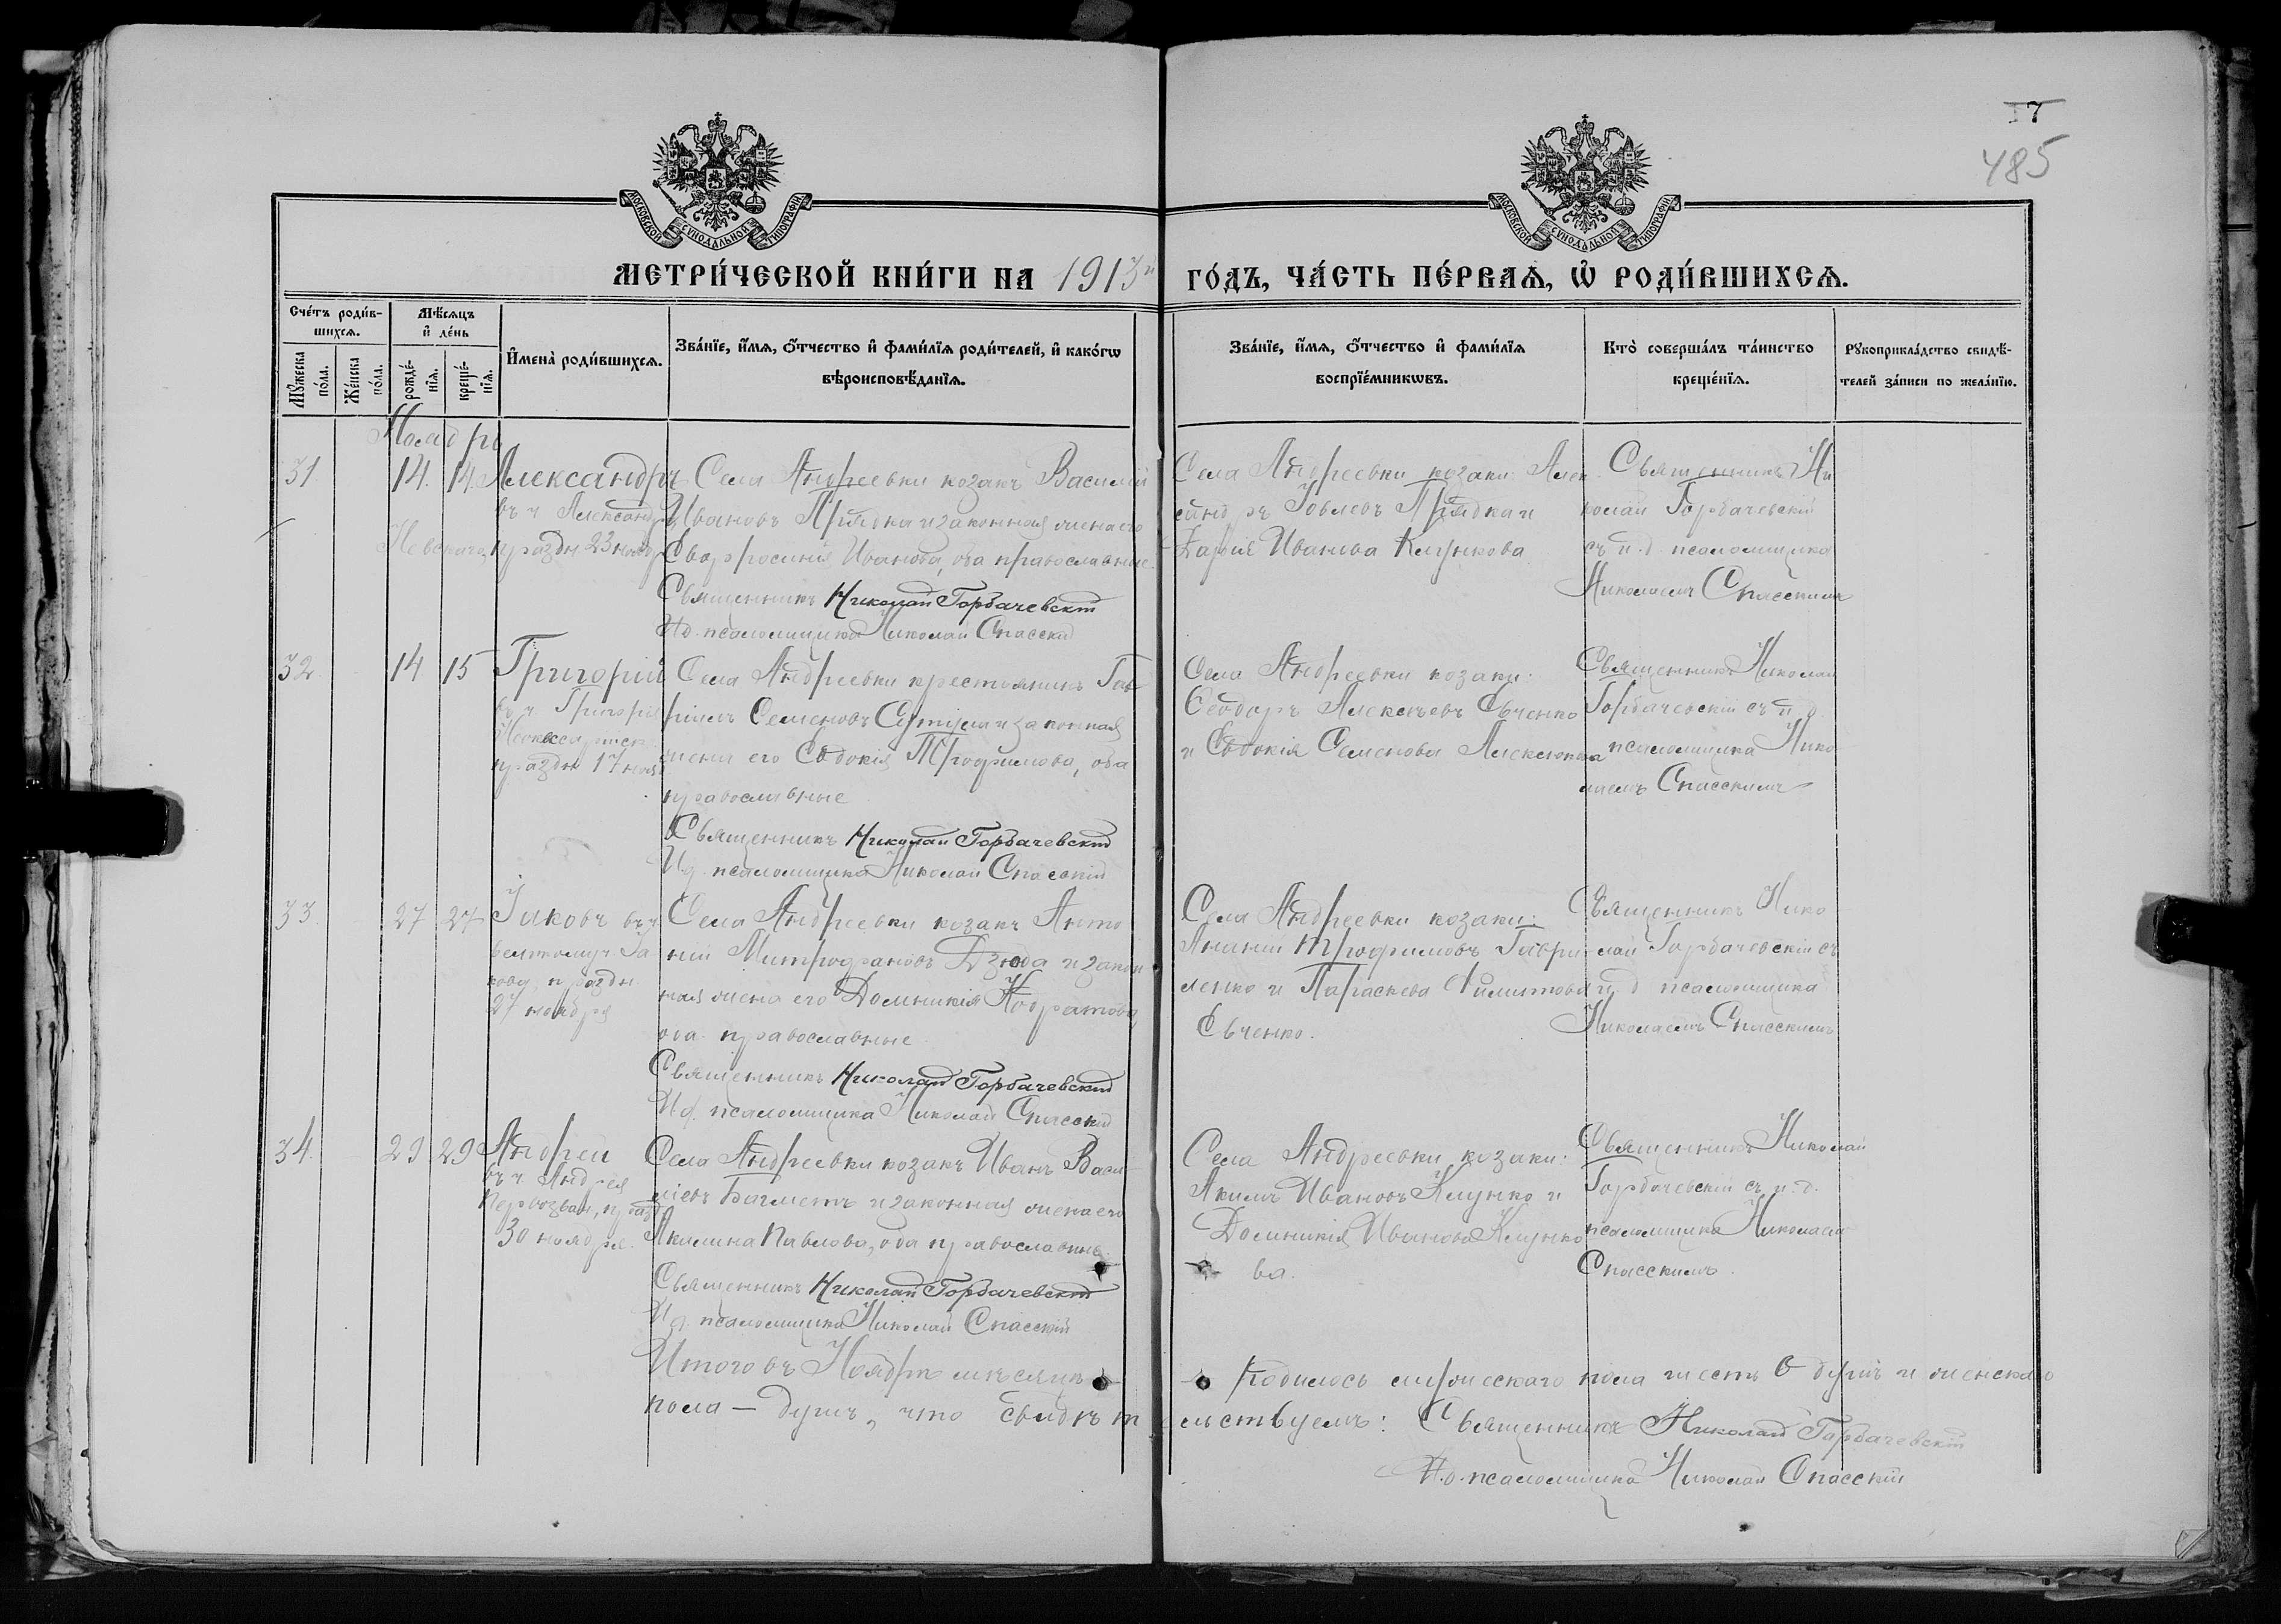 7
485
МОСКОВСКОЙ СѴНОДАЛЬНОЙ ТИПОГРАФІИ
МОСКОВСКОЙ СѴНОДАЛЬНОЙ ТИПОГРАФІИ
МЕТРИ́ЧЕСКОЙ КНИ́ГИ НА 1913й ГО́ДЪ, ЧА́СТЬ ПЕ́РВАѦ, Ѡ҆ РОДИ́ВШИХСѦ.
Сче́тъ роди́в-
шихсѧ.
Мꙋ́жеска по́ла.
Же́нска по́ла.
Мѣ́сѧцъ
и҆ де́нь
рожде́-
нїѧ.
креще́-
нїѧ.
И҆мена̀ роди́вшихсѧ.
Зва́нїе, и҆́мѧ, ѻ҆́тчество и҆ фами́лїѧ роди́телей, и҆ како́гѡ
вѣроисповѣ́данїѧ.
Зва́нїе, и҆́мѧ, ѻ҆́тчество и҆ фами́лїѧ
воспрїе́мникѡвъ.
Кто̀ соверша́лъ та́инство
креще́нїѧ.
Рꙋкоприкла́дство свидѣ́-
телей за́писи по жела́нїю.
Ноябрь
31
14.
14.
Александръ
въ ч Александра
Невскаго, праздн 23 нояб
Села Андреевки козакъ Василій
Ивановъ Прядка и законная жена его
Евфросинія Иванова, оба православные.
Священникъ Николай Горбачевскій
Ид. псаломщика Николай Спасскій
Села Андреевки козаки: Алек
сандръ Іовлевъ Прядка и
Дарія Иванова Клункова
Священникъ Ни
колай Горбачевскій
съ и.д. псаломщика
Николаемъ Спасскимъ
32.
14
15
Григорій
въ ч. Григорія
Неокесарійск
праздн 17 нояб
Села Андреевки крестьянинъ Гав
ріилъ Семеновъ и законная
жена его Евдокія Трофимова, оба
православные
Священникъ Николай Горбачевскій
Ид. псаломщика Николай Спасскій
Села Андреевки козаки:
Ѳеодоръ Алексѣевъ Евченко
и Евдокія Семенова
Священникъ Николай
Горбачевскій съ и.д.
псаломщика Нико
лаемъ Спасскимъ
33.
27
27
Іаковъ въ ч
великомуч. Іа
кова, праздн.
27 ноября
Села Андреевки козакъ Анто
ній Митрофановъ Дзюба и закон
ная жена его Домникія Кодратова,
оба православные
Священникъ Николай Горбачевскій
Ид. псаломщика Николай Спасскій
Села Андреевки козаки:
Ананій Трофимовъ Гаври
ленко и Параскева Филитова
Евченко.
Священникъ Нико
лай Горбачевскій съ
и д псаломщика
Николаемъ Спасскимъ
34.
29
29
Андрей
въ ч. Андрея
Первозван, празд
30 ноября.
Села Андреевки козакъ Иванъ Васи
ліевъ Багметъ и законная жена его
Акилина Павлова, оба православные.
Священникъ Николай Горбачевскій
Ид. псаломщика Николай Спасскій
Села Андреевки козаки:
Акимъ Ивановъ Клунко и
Домникія Иванова Клунко
ва.
Священникъ Николай
Горбачевскій съ и.д.
псаломщика Николаемъ
Спасскимъ.
Итого въ Ноябрѣ мѣсяцѣ родилось мужескаго пола шесть 6 душъ и женскаго
пола — душъ, что свидѣтельствуемъ: Священникъ Николай Горбачевскій
И.д. псаломщика Николай Спасскій